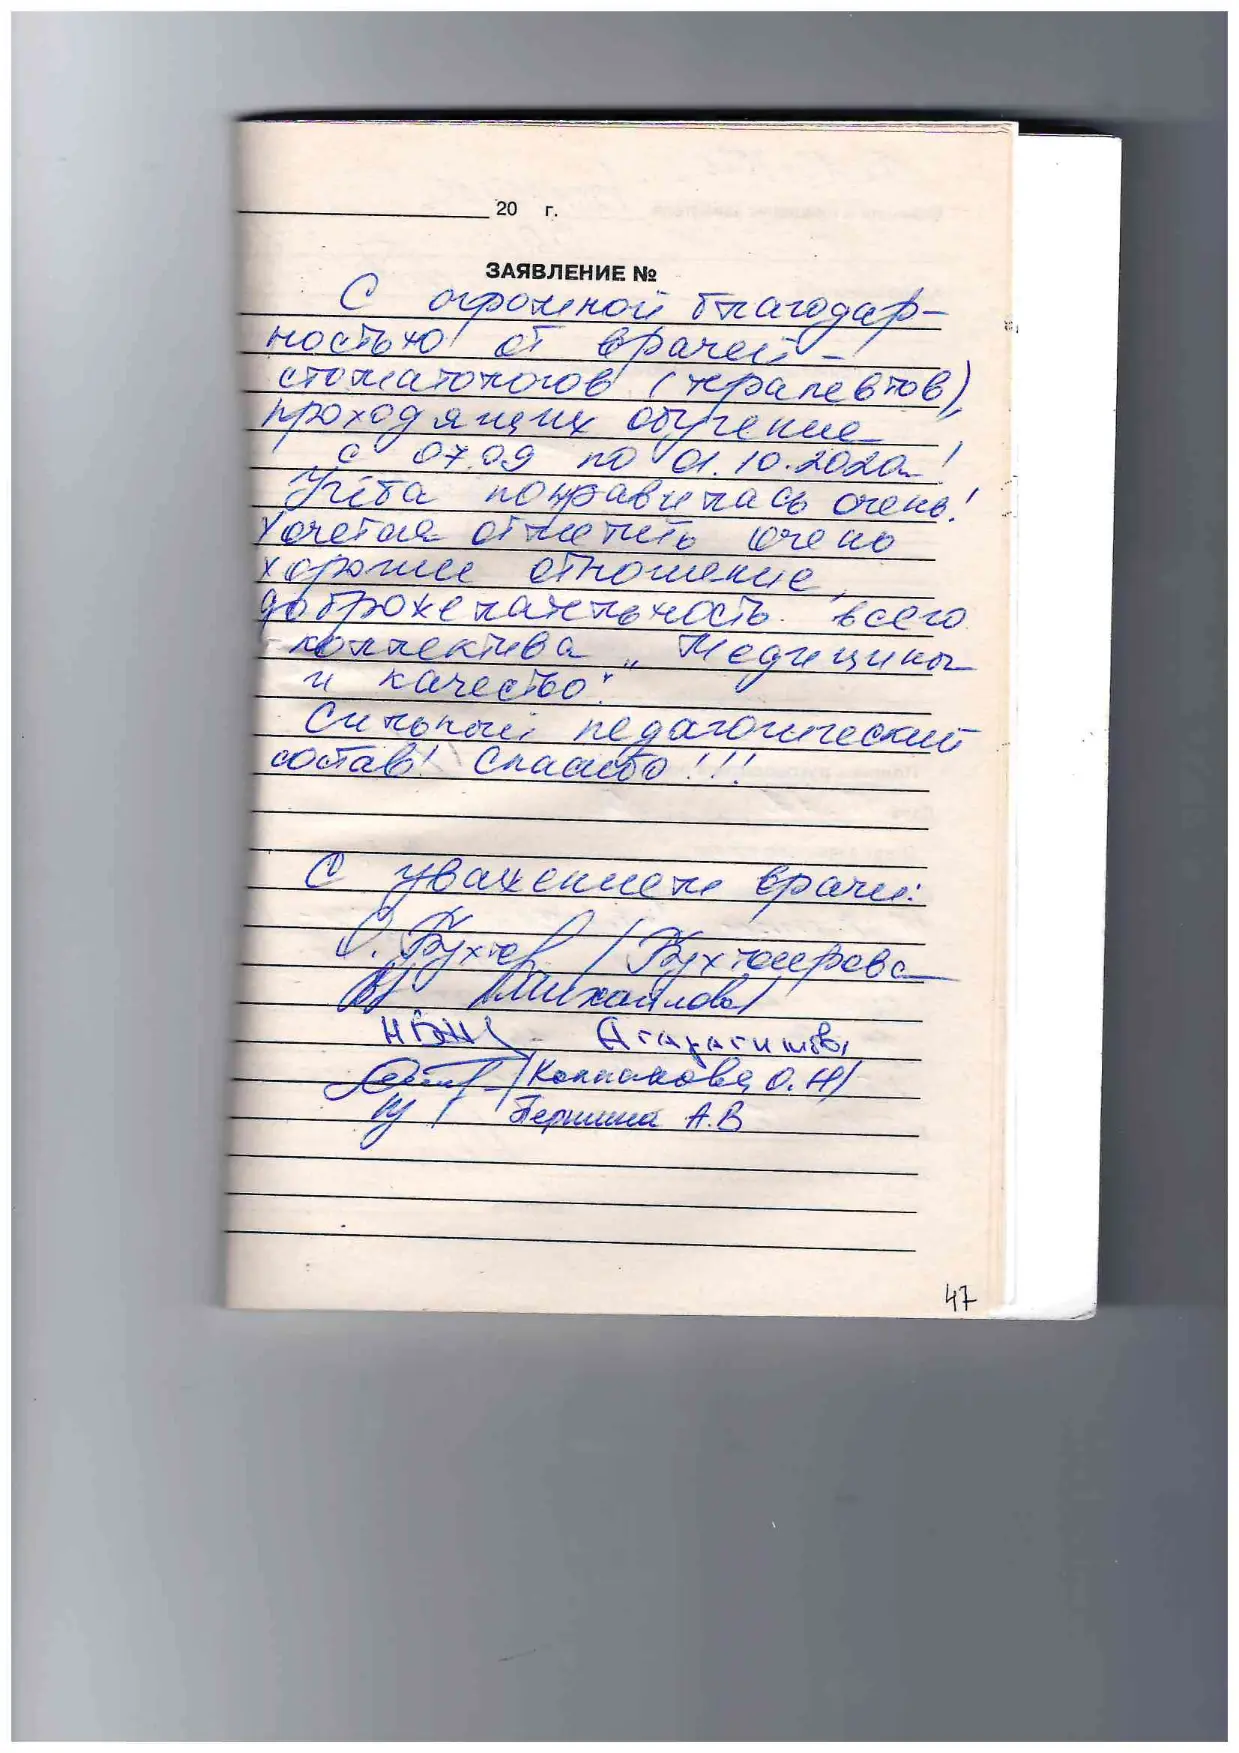 20 г.
ЗАЯВЛЕНИЕ №
С огромной благодар-
ностью от врачей-
стоматологов (терапевтов),
проходящих обучение
с 07.09 по 01.10.2020г.!
Учёба понравилась очень!
Хочется отметить очень
хорошее отношение,
доброжелательность всего
коллектива „Медицины
и качество".
Сильный педагогический
состав! Спасибо!!!
С уважением врачи:
Михайлова/
/Колпакова О.Н/
А.В
47